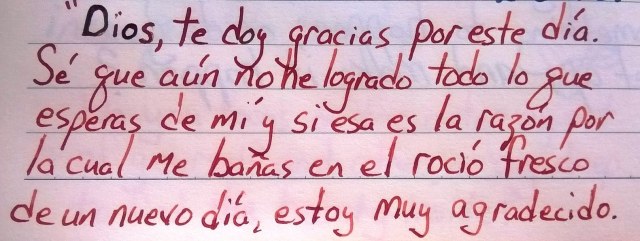 "Dios, te doy gracias por este día.
Sé que aún no he logrado todo lo que
esperas de mí y si esa es la razón por
la cual me bañas en el roció fresco
de un nuevo día, estoy muy agradecido.